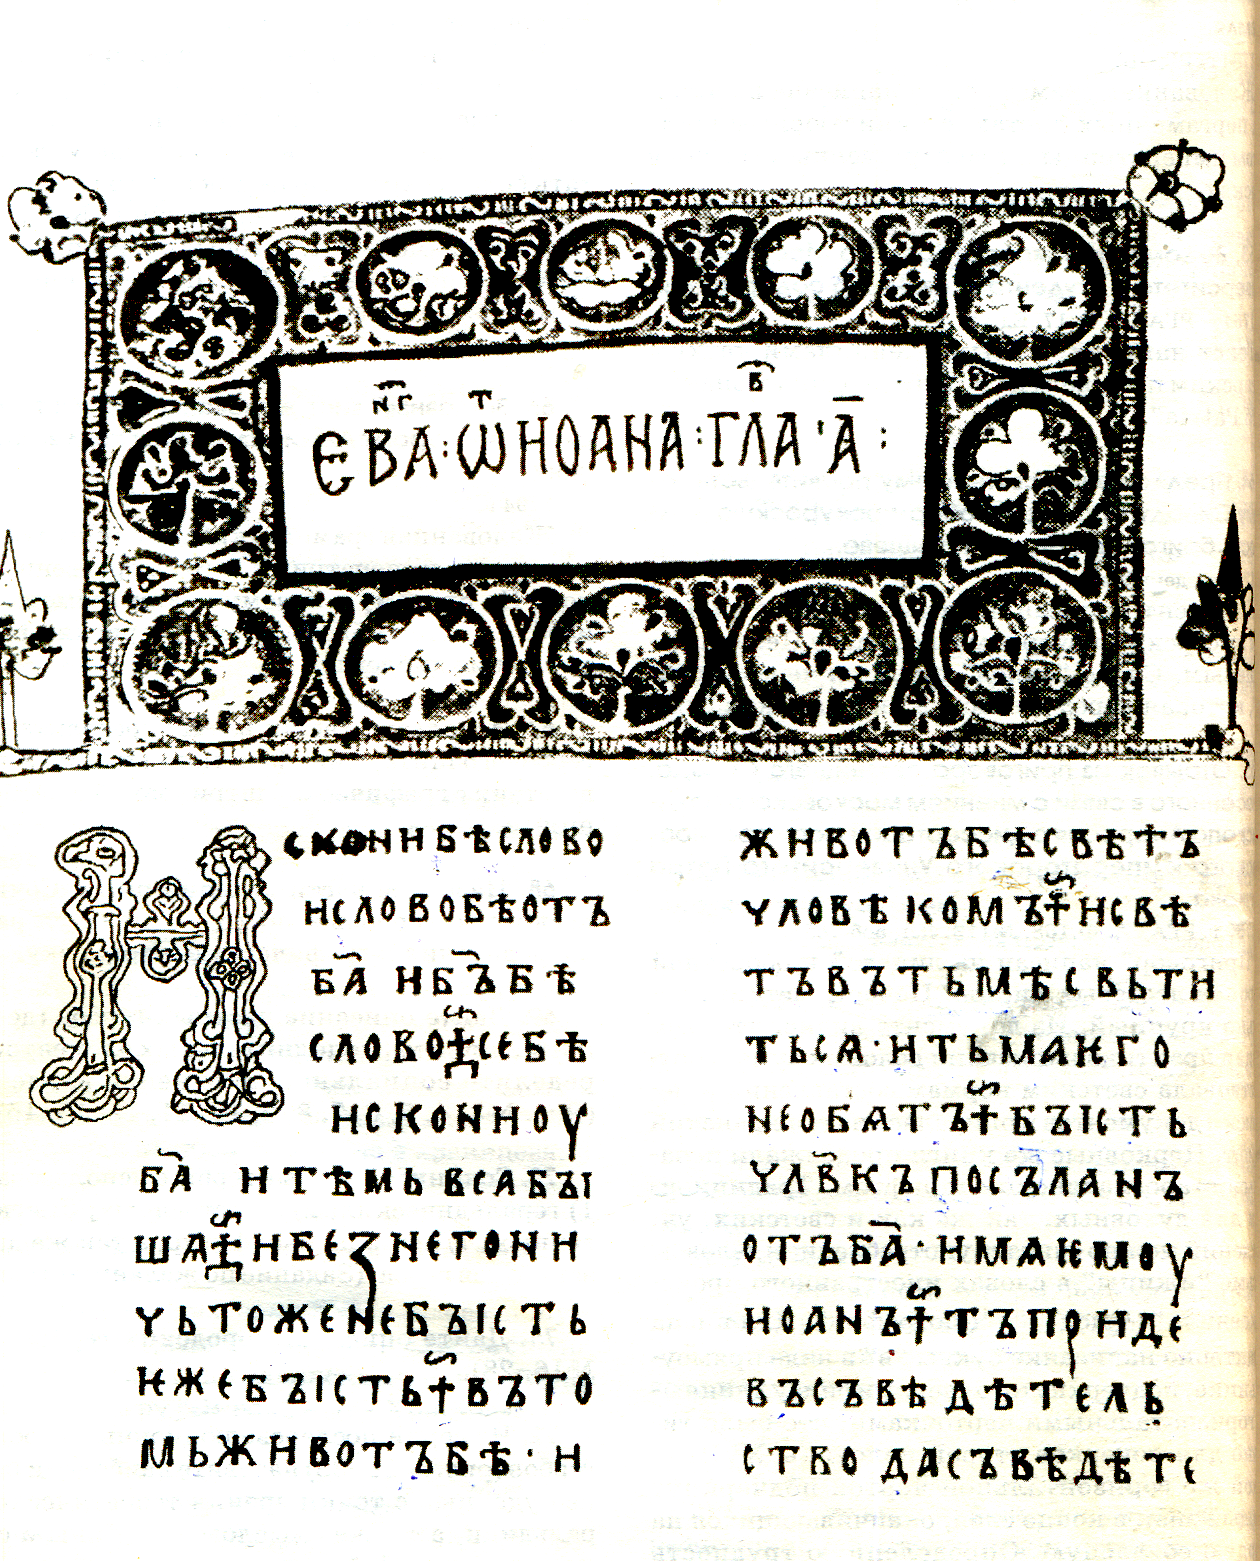 ЄВА҃Г : Ѿ ИОАНА : ГЛВА · А҃ :
Искони бѣ слово
и слово бѣ отъ
Ба҃ и бъ҃ бѣ
слово ⰰ се бѣ
искони оу
ба҃ и тѣмь вса бꙑ
шѧ и без него ни
чьтоже не бꙑсть
ѥже бꙑсть ✝ въ то
мь животъ бѣ · и
животъ бѣ свѣтъ
чловѣкомъ ✝ и свѣ
тъ въ тьмѣ свьти
тьсѧ · и тьма ѥго
не обѧтъ ✝ бꙑсть
чл҃вкъ посъланъ
отъ ба҃ · имѧ ѥмоу
иоанъ ✝ тъ приде
въ съвѣдѣтель
ство да съвѣдѣте